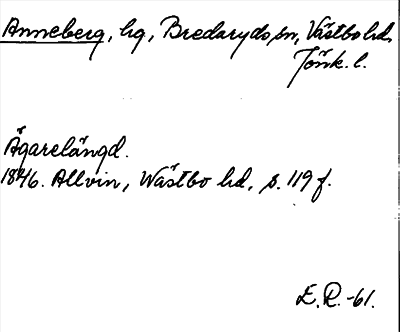 Anneberg, hg, Bredaryds sn, Västbo hd,
Jönk. l.
Ägarelängd.
1846. Allvin, Wästbo hd, s. 119 f.
E. R. -61.